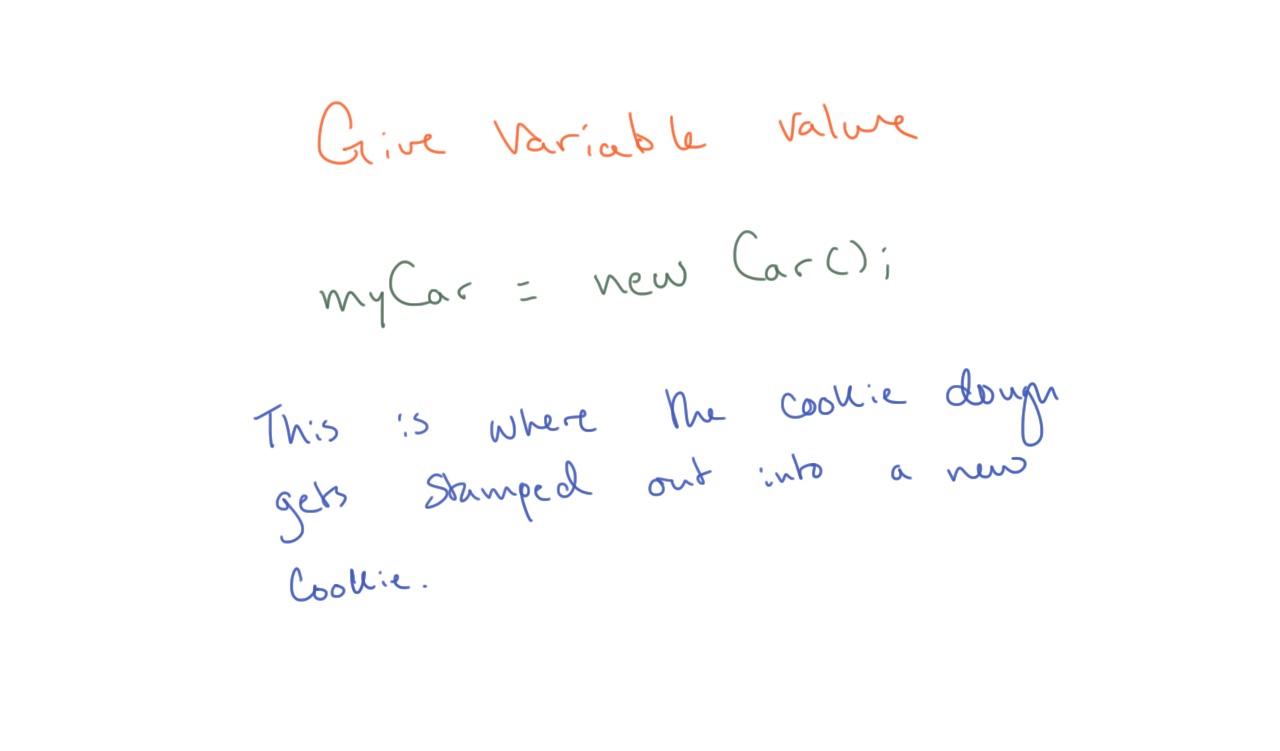 Give Variable value
myCar = new Car();
This is where the cookie dough
gets stamped out into a new
Cookie.